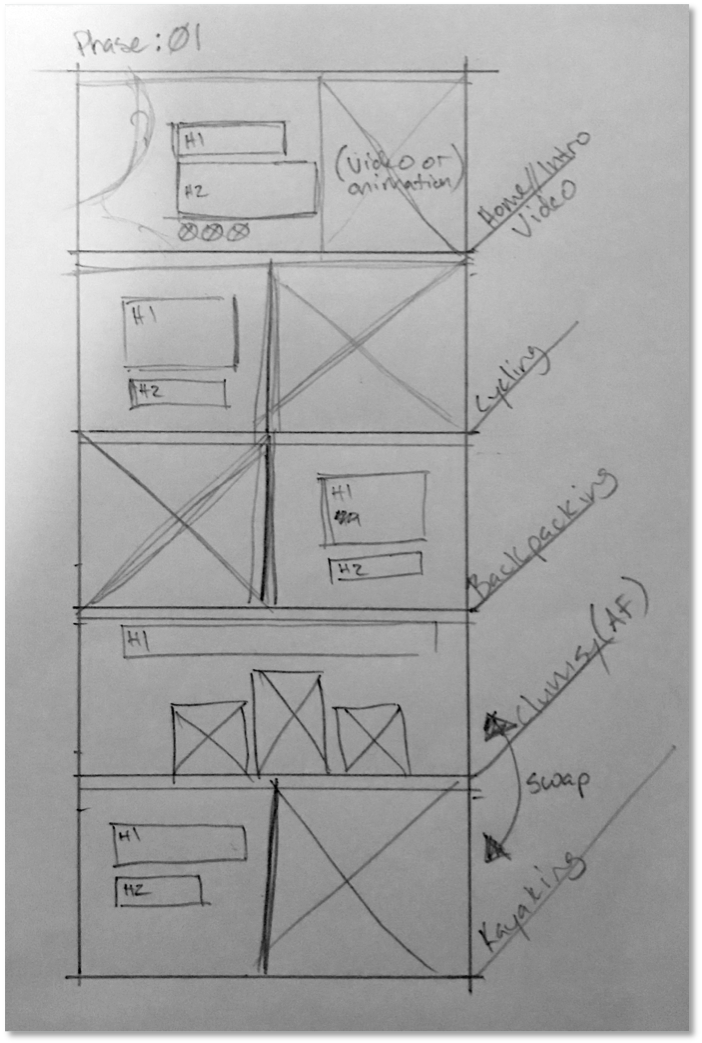 Phase: 01
H1
H2
(Video or
animation)
Home/Intro
Video
H1
H2
Cycling
H1
H2
Backpacking
H1
Clumsy (AF)
swap
H1
H2
Kayaking